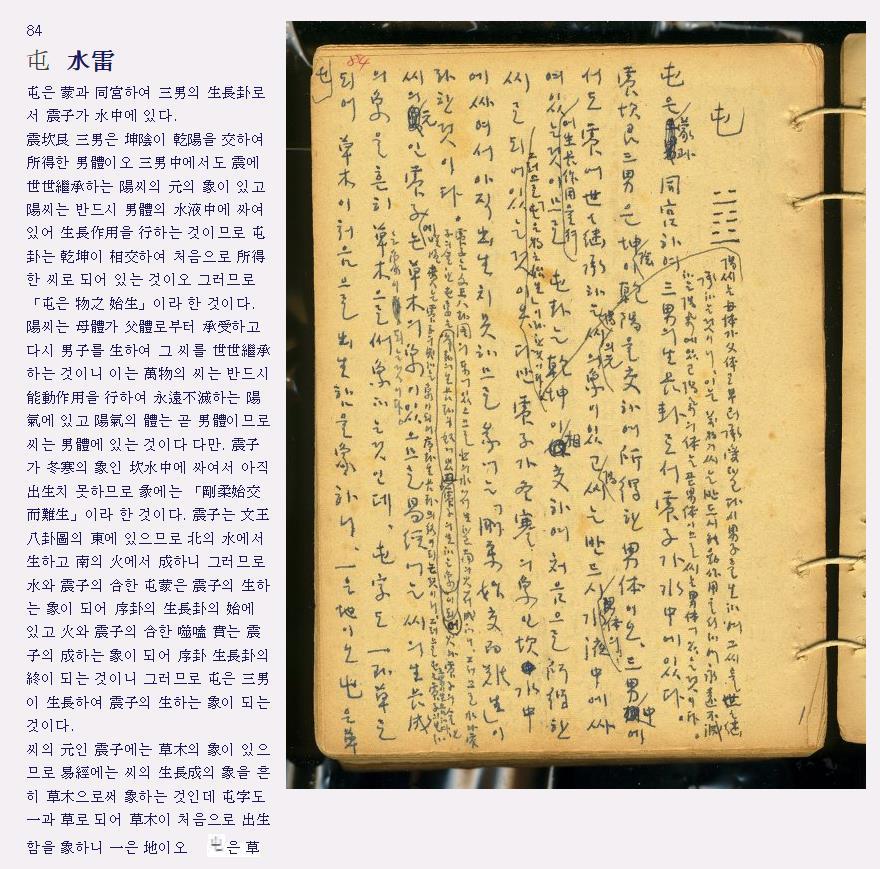 84
屯 水雷
屯은 蒙과 同宮하여 三男의 生長卦로
서 震子가 水中에 있다.
震坎艮 三男은 坤陰이 乾陽을 交하여
所得한 男體이오 三男中에서도 震에
世世繼承하는 陽씨의 元의 象이 있고
陽씨는 반드시 男體의 水液中에 싸여
있어 生長作用을 行하는 것이므로 屯
卦는 乾坤이 相交하여 처음으로 所得
한 씨로 되어 있는 것이오 그러므로
「屯은 物之 始生」이라 한 것이다.
陽씨는 母體가 父體로부터 承受하고
다시 男子를 生하여 그 씨를 世世繼承
하는 것이니 이는 萬物의 씨는 반드시
能動作用을 行하여 永遠不滅하는 陽
氣에 있고 陽氣의 體는 곧 男體이므로
씨는 男體에 있는 것이다 다만. 震子
가 冬寒의 象인 坎水中에 싸여서 아직
出生치 못하므로 彖에는 「剛柔始交
而難生」이라 한 것이다. 震子는 文王
八卦圖의 東에 있으므로 北의 水에서
生하고 南의 火에서 成하니 그러므로
水와 震子의 合한 屯蒙은 震子의 生하
는 象이 되어 序卦의 生長卦의 始에
있고 火와 震子의 合한 噬嗑 賁는 震
子의 成하는 象이 되어 序卦 生長卦의
終이 되는 것이니 그러므로 屯은 三男
이 生長하여 震子의 生하는 象이 되는
것이다.
씨의 元인 震子에는 草木의 象이 있으
므로 易經에는 씨의 生長成의 象을 흔
히 草木으로써 象하는 것인데 屯字도
一과 草로 되어 草木이 처음으로 出生
함을 象하니 一은 地이오 屯은 草
84
屯
屯은 蒙과 同宮하여 三男의 生長卦로서 震子가 水中에 있다.
震坎艮 三男은 坤陰이 乾陽을 交하여 所得한 男体이오. 三男中에
서도 震에 世世継承하는 陽씨의 元의 象이 있고 陽씨는 반드시 男体의 水液中에 싸
여 있어 生長作用을 行하는 것이므로 屯卦는 乾坤이 相交하여 처음으로 所得한
씨로 되어 있는 것이오 다만 震子가 冬寒의 象인 坎水中
에 싸여서 아직 出生치 못하므로 彖에는 「剛柔始交而難生」이
라 한 것이다.
씨의 元인 震子는 草木의 象이 있으므로 易經에는 씨의 生長成
의 象을 흔히 草木으로써 象하는 것인데, 屯字도 一과 草로
되어 草木이 처음으로 出生함을 象하니, 一은 地이오 屯은 草